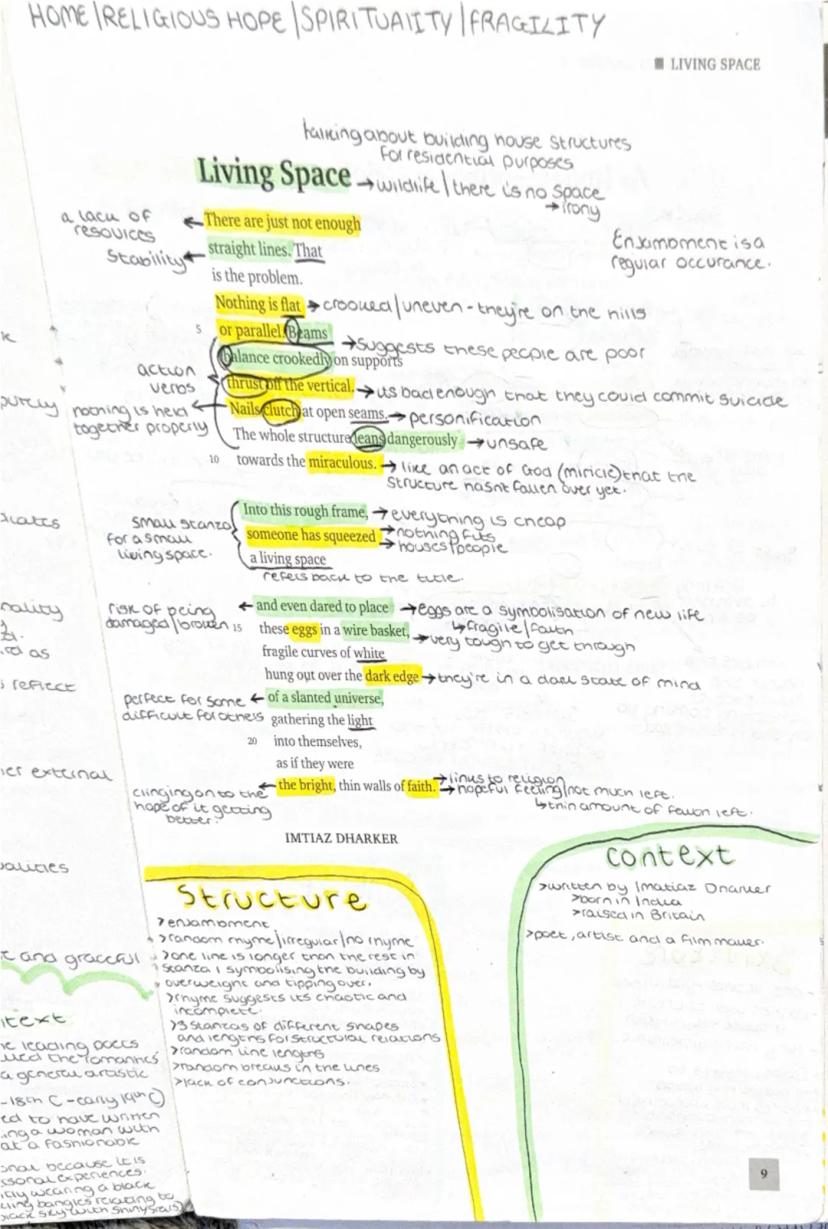 HOME/RELIGIOUS HOPE/SPIRITUALITY/FRAGILITY
■ LIVING SPACE
talking about building house structures
for residential purposes
Living Space →wildlife/there is no space
→irony
a lack of
resources
← There are just not enough
Stability← straight lines. That
is the problem.
Enjamoment is a
regular occurance.
Nothing is flat → crooked/uneven - they're on the hills
5 or parallel. Beams → suggests these people are poor
balance crookedly on supports
action
verbs
thrust off the vertical. → its bad enough that they could commit suicide
nothing is held
together properly
← Nails clutch at open seams. → personification
The whole structure leans dangerously → unsafe
10 towards the miraculous. → like an act of God (miricle) that the
structure hasnt fallen over yet.
small stanza
for a small
living space.
Into this rough frame, → everything is cheap
someone has squeezed → nothing fits
→ houses/people
a living space
refers back to the title.
risk of being
damaged/broken
← and even dared to place → eggs are a symbolisation of new life
↳fragile/faith
15 these eggs in a wire basket, → very tough to get through
fragile curves of white
hung out over the dark edge → they're in a dark state of mind
perfect for some
difficult for others
← of a slanted universe,
gathering the light
20 into themselves,
as if they were
← the bright, thin walls of faith. → links to religion
→ hopeful feeling/not much left.
↳thin amount of left.
clinging on to the
hope of it getting
better.
IMTIAZ DHARKER
Structure
>enjamoment
>random rhyme/irregular/no rhyme
>one line is longer than the rest in
stanza 1 symbolising the building by
overweight and tipping over.
>rhyme suggests its chaotic and
incomplete.
>3 stanzas of different shapes
and lengths for structural relations
>random line lengths
>random breaks in the lines
>lack of conjunctions.
context
>written by Imatiaz Dharker
>born in India
>raised in Britain
>poet, artist and a film maker.
purely
nality
as
s reflect
ier external
alities
c and graceful
text
e leading poets
the romantics
a general artistic
-18th C -early 19th C)
ed to have written
ing a woman with
at a fashionable
onal because it is
sonal experiences.
wearing a black
bangles relating to
black sky with shiny
9